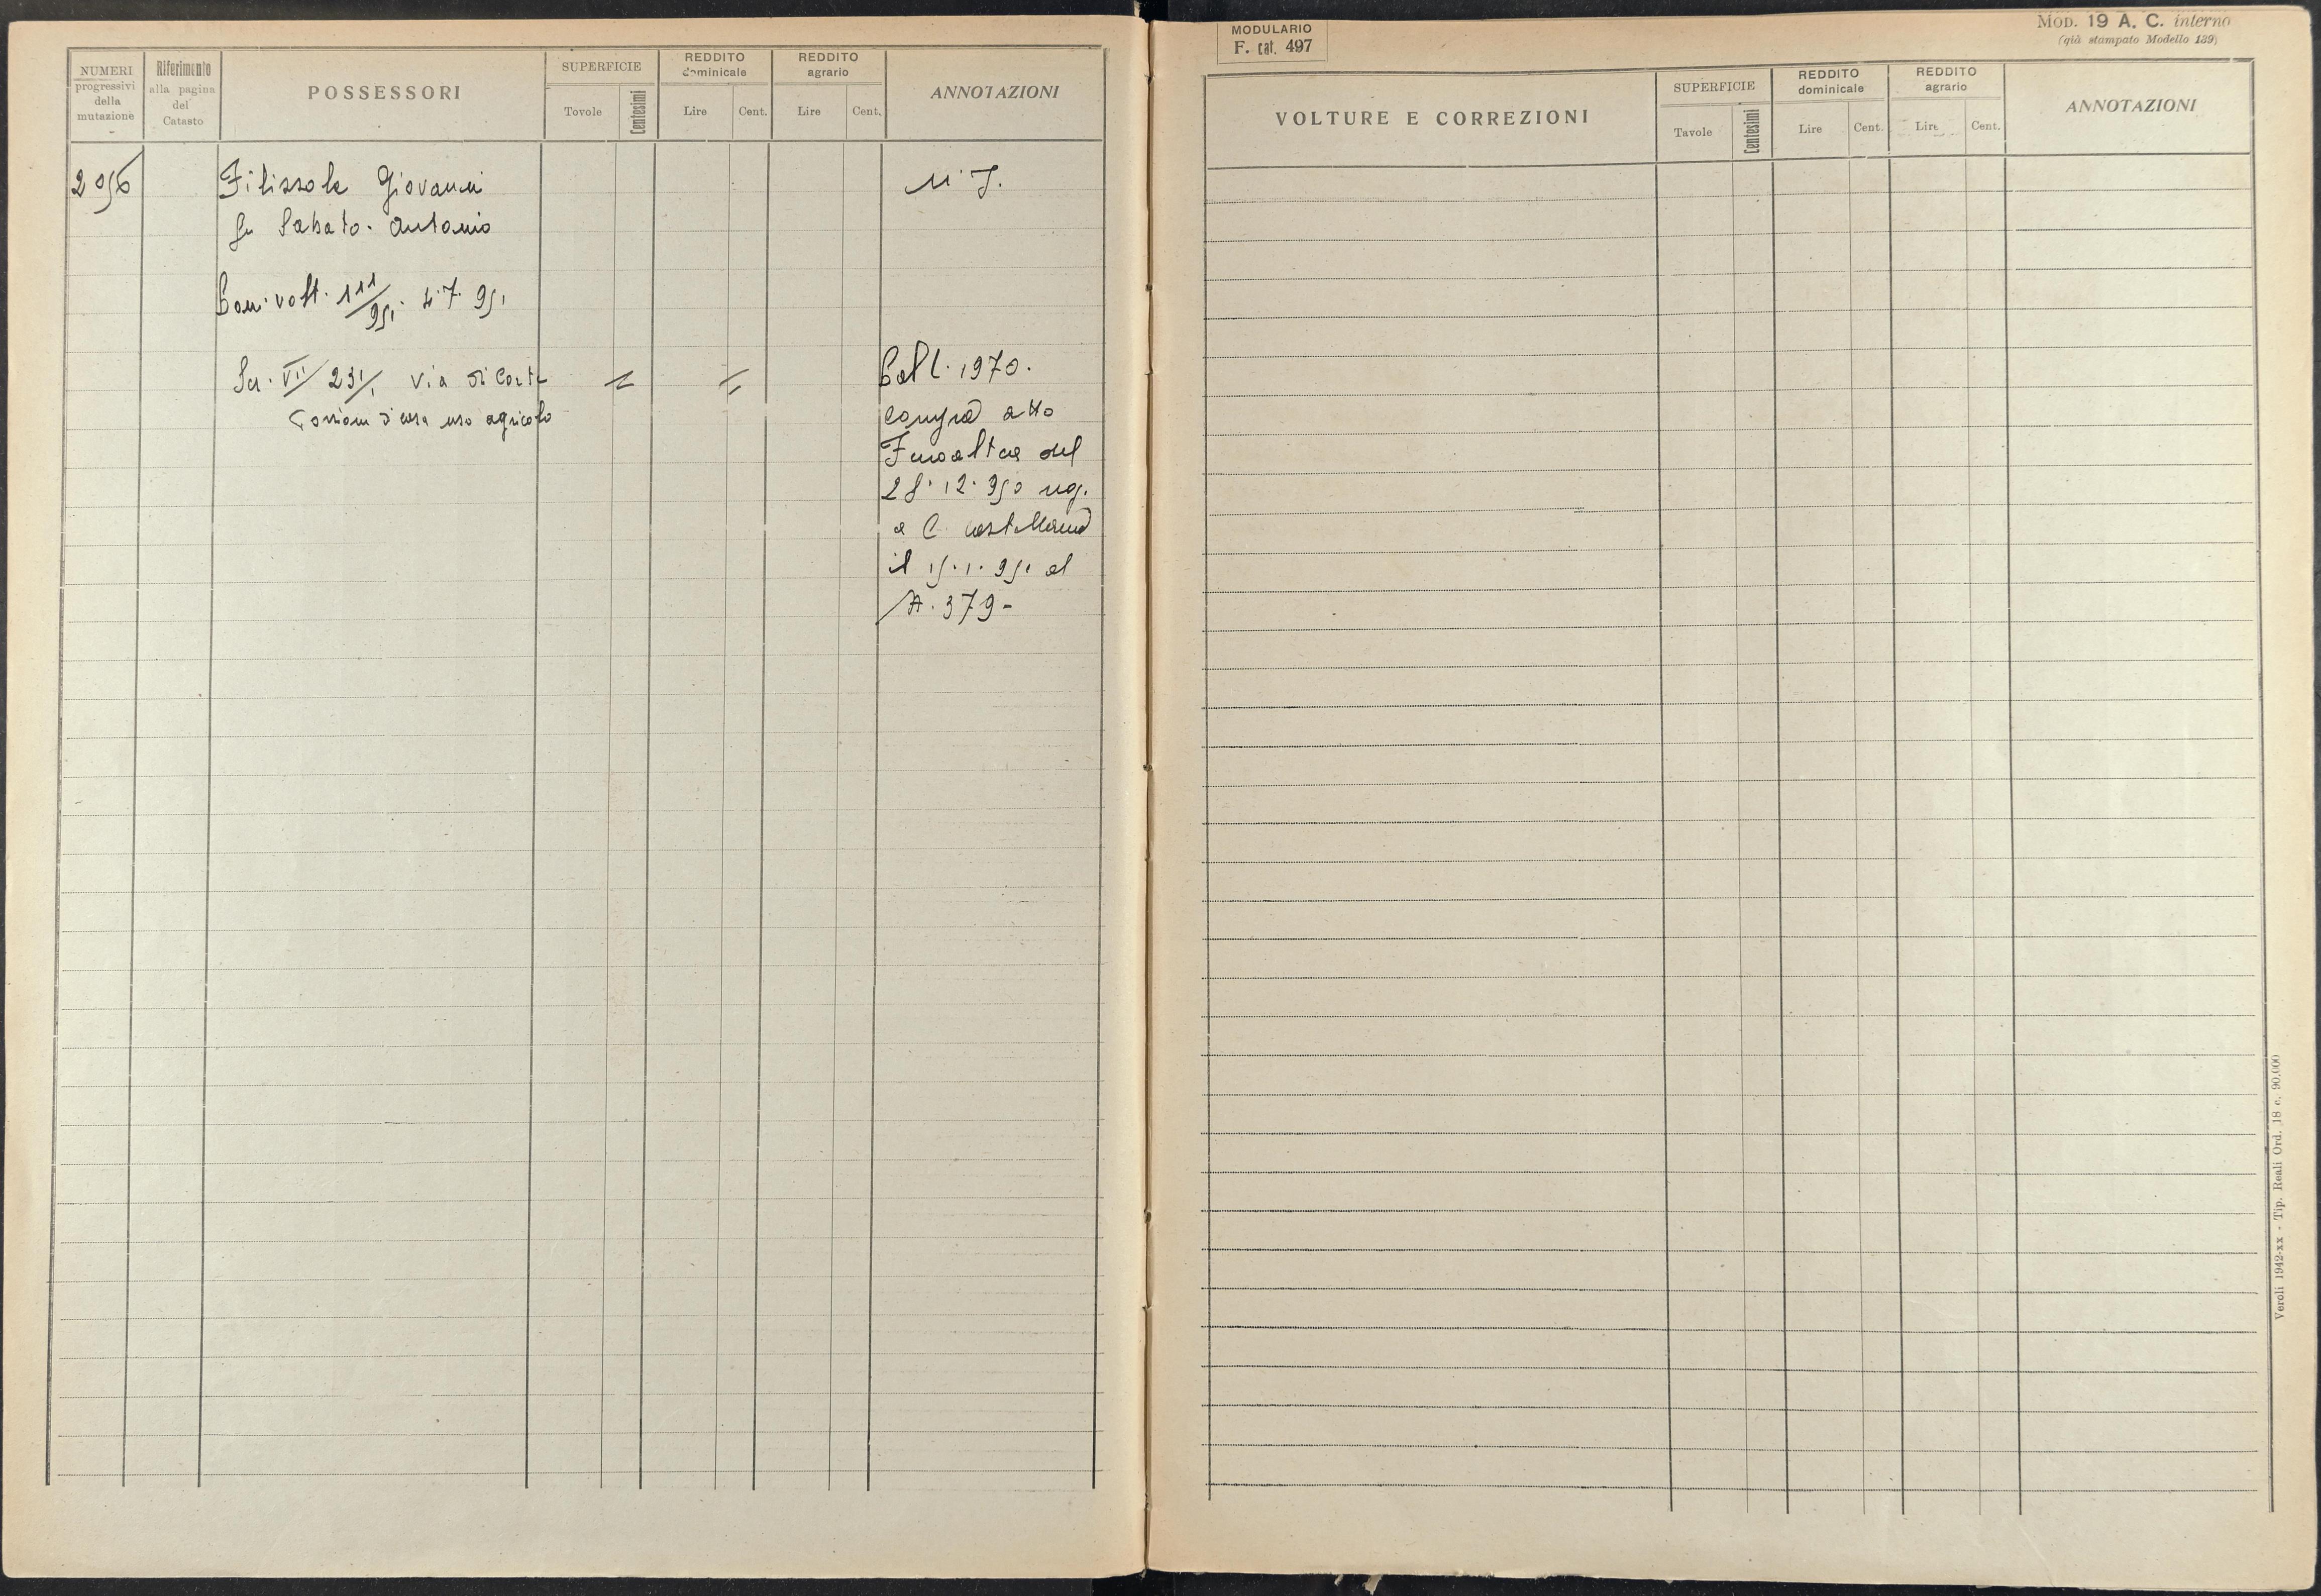 NUMERI
progressivi
della
mutazione
Riferimento
alla pagina
del
Catasto
POSSESSORI
SUPERFICIE
Tovole
Centesimi
REDDITO
dominicale
Lire
Cent.
REDDITO
agrario
Lire
Cent.
ANNOTAZIONI
2056
Filizzola Giovanni
fu Sabato-Antonio
Dom. volt. 111/951 4.7.951
Sez. VII/231/1 via di Corte
Porzione di casa uso agricolo
N. I.
Coll. 1970.
compra atto
del
28.12.950 reg.
a C.
il 15.1.951 al
N. 379-
MODULARIO
F. cat. 497
MOD. 19 A. C. interno
(già stampato Modello 139)
VOLTURE E CORREZIONI
SUPERFICIE
Tavole
Centesimi
REDDITO
dominicale
Lire
Cent.
REDDITO
agrario
Lire
Cent.
ANNOTAZIONI
Veroli 1942-xx - Tip. Reali Ord. 18 c. 90,000